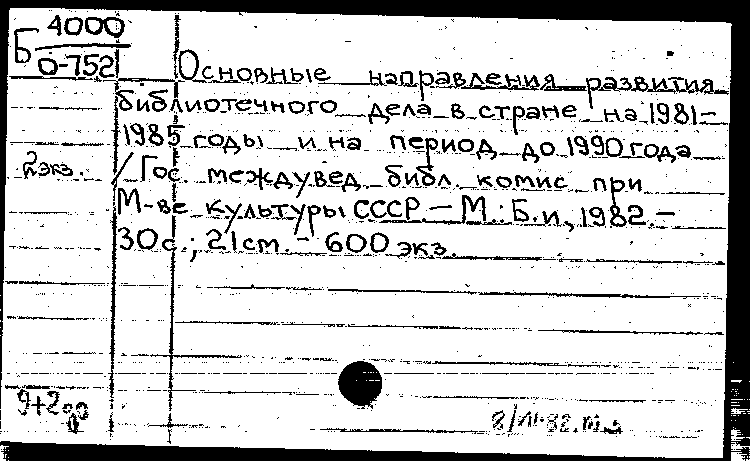 Б 4000
О-752
Основные направления развития
библиотечного дела в стране на 1981-
1985 годы и на период до 1990 года
2экз. /Гос междувед. библ. комис при
М-ве культуры СССР.— М.: Б.и., 1982.—
30с.; 21см.— 600 экз.
9+2
82.